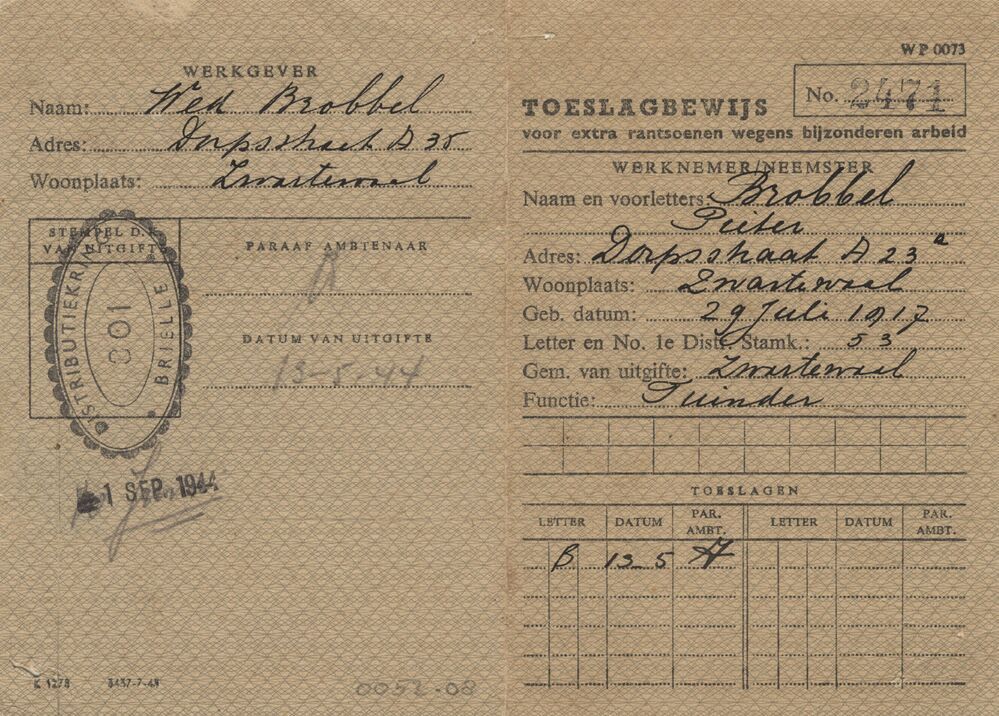 WERKGEVER
Naam: Wed Brobbel
Adres: Dorpsstraat A 35
Woonplaats: Zwartewaal
STEMPEL D.K.
VAN UITGIFTE
DISTRIBUTIEKRING
BRIELLE
301
PARAAF AMBTENAAR
DATUM VAN UITGIFTE
13-5-44
1 SEP. 1944
K 1278
0052-08
WP 0073
No. 2471
TOESLAGBEWIJS
voor extra rantsoenen wegens bijzonderen arbeid
WERKNEMER/NEEMSTER
Naam en voorletters: Brobbel
Pieter
Adres: Dorpsstraat A 23a
Woonplaats: Zwartewaal
Geb. datum: 29 Juli 1917
Letter en No. 1e Distr. Stamk.: 53
Gem. van uitgifte: Zwartewaal
Functie: Tuinder
TOESLAGEN
LETTER DATUM PAR. AMBT. LETTER DATUM PAR. AMBT.
B 13-5